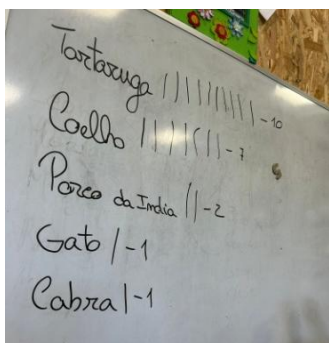 Tartaruga |||||||||| - 10
Coelho ||||||| - 7
Porco da India || - 2
Gato | - 1
Cabra | - 1